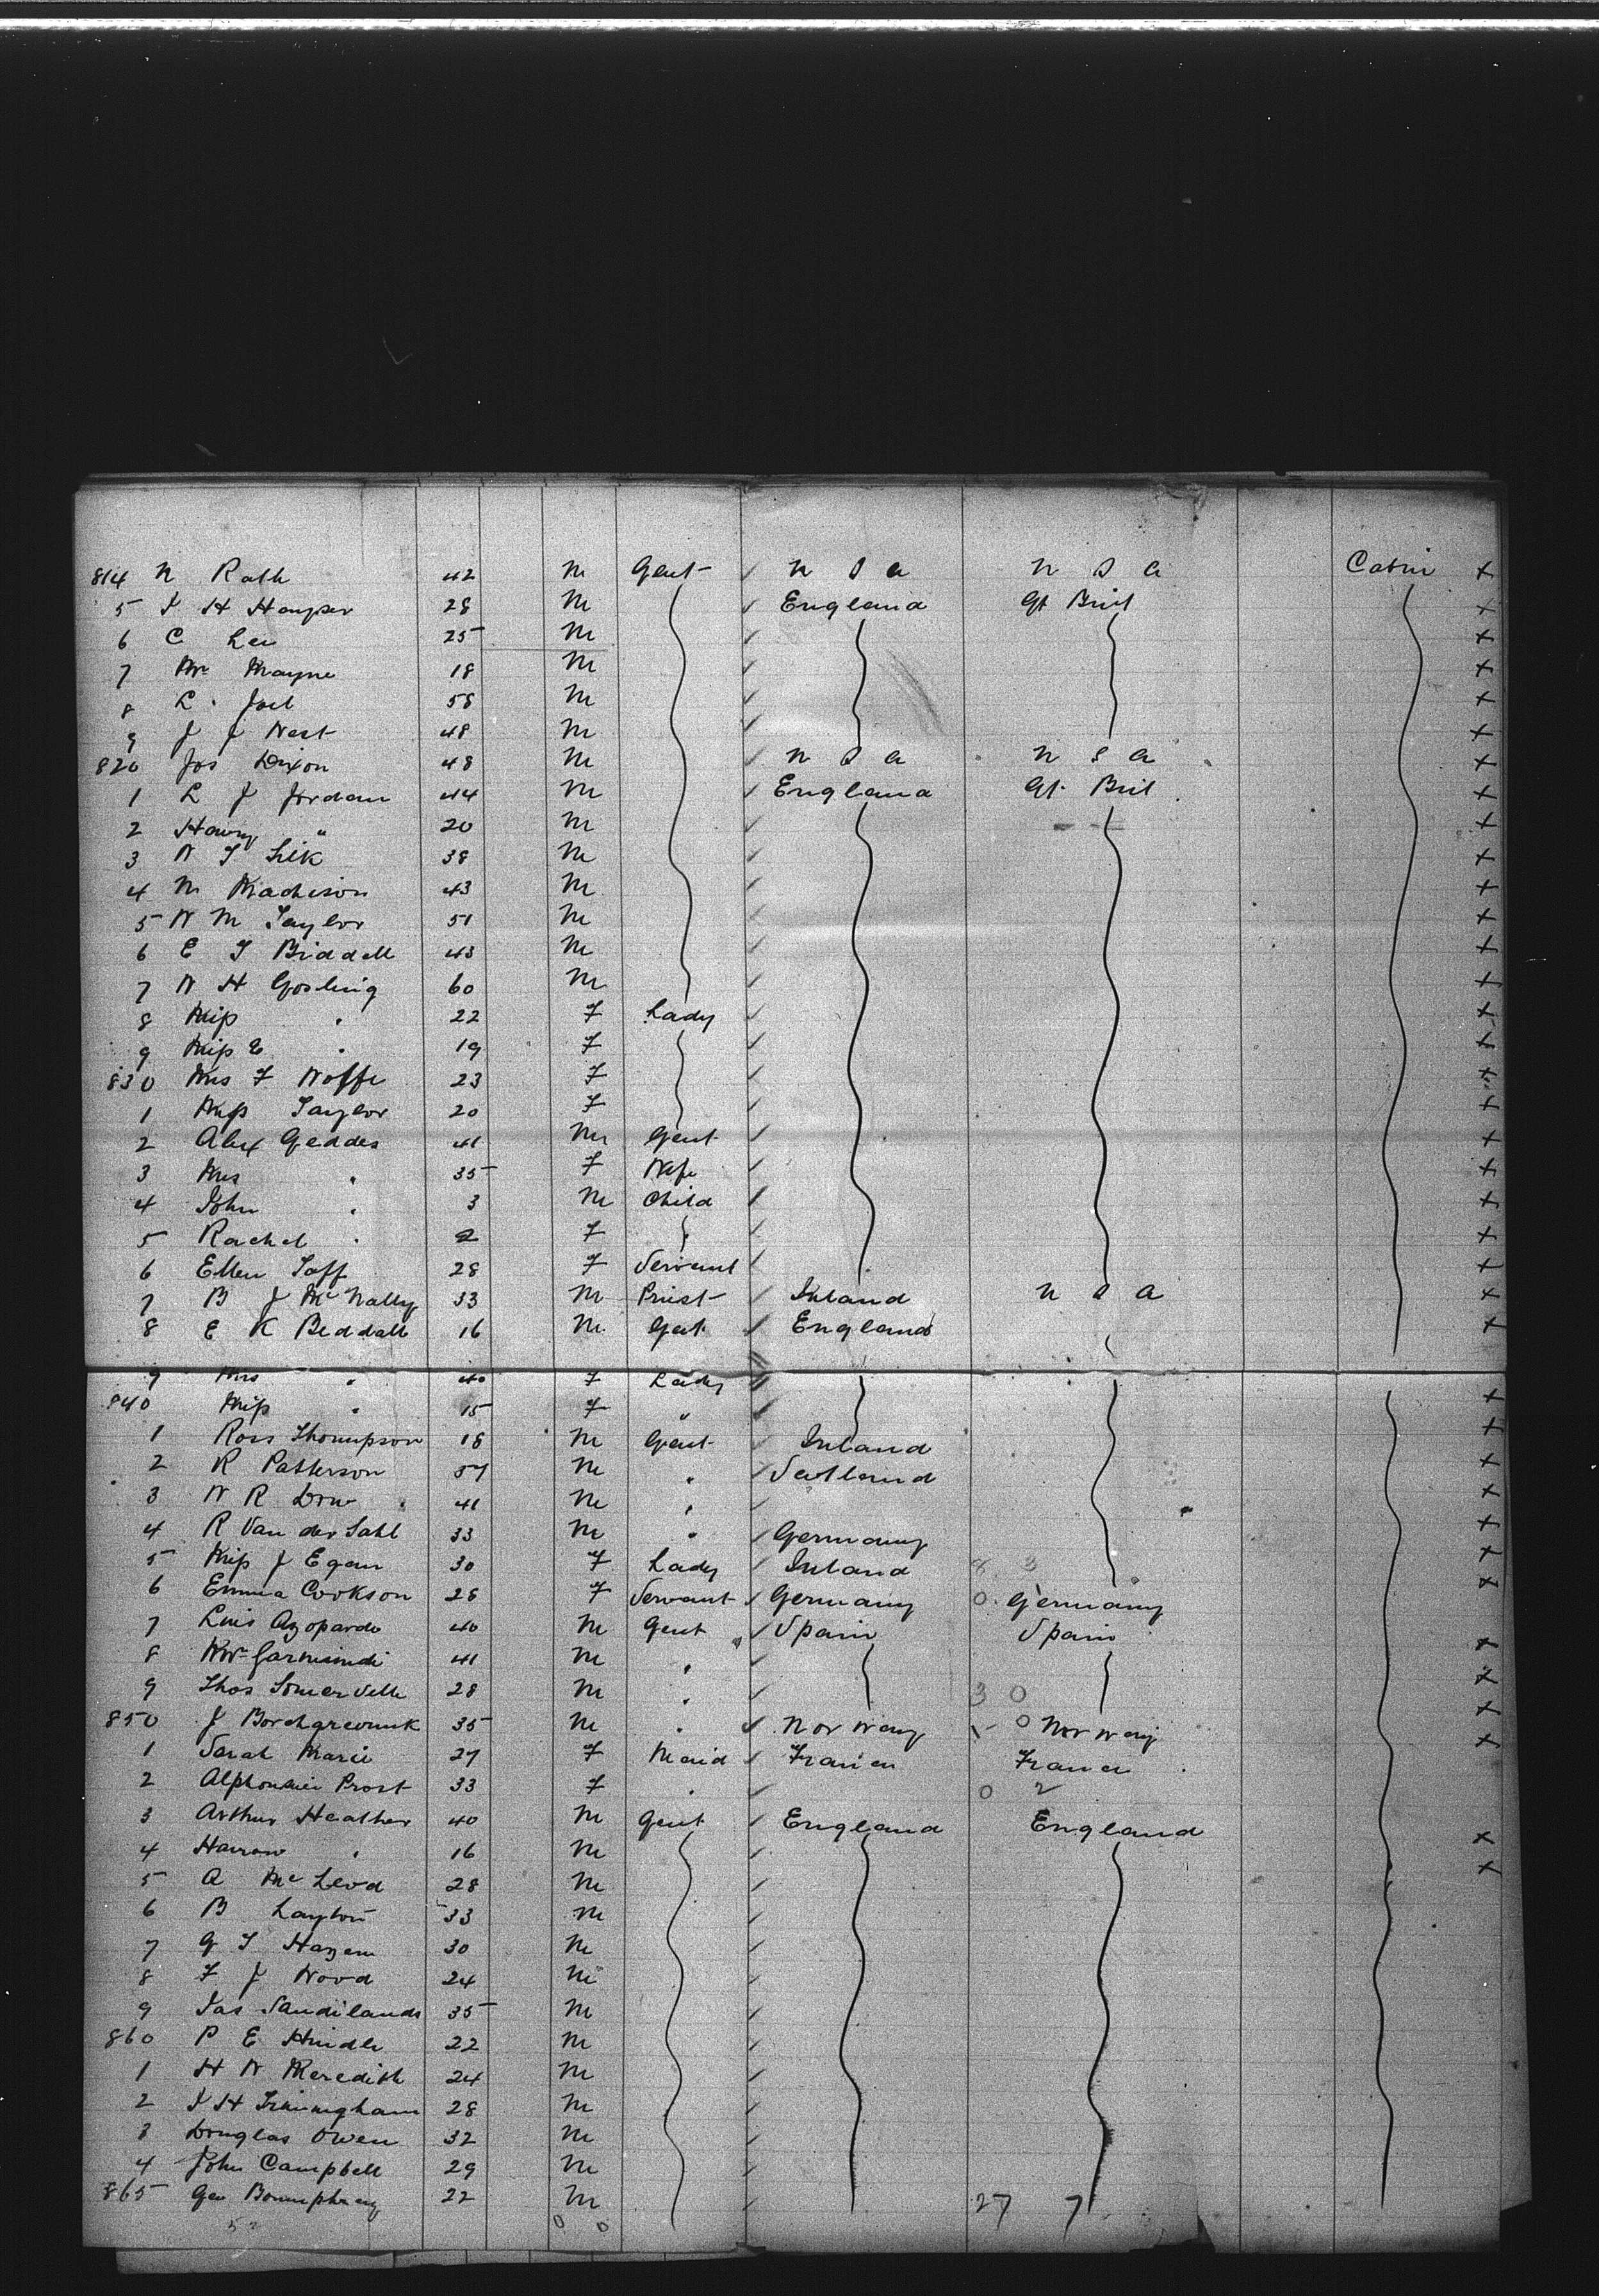 814 N Rath 42 M Gent U S A U S A Cabin X
5 J H Hauser 28 M England Gt Brit X
6 C Lee 25 M X
7 Mr Mayne 18 M X
8 L. Joel 58 M X
9 J J West 48 M X
820 Jos Dixon 48 M U S A U S A X
1 L J Jordan 44 M England Gt Brit X
2 Harry " 20 M X
3 W T 38 M X
4 M Madison 43 M X
5 W M Taylor 51 M X
6 E T Biddell 43 M X
7 W H Gosling 60 M X
8 Miss " 22 F Lady X
9 Miss E " 19 F X
830 Mrs F Woffe 23 F X
1 Miss Taylor 20 F X
2 Alex Geddes 41 M Gent X
3 Mrs " 35 F Wife X
4 John " 3 M Child X
5 Rachel " 2 F X
6 Ellen Taff 28 F Servant X
7 B J McNally 33 M Priest Ireland U S A X
8 E K Beddall 16 M Gent England X
9 Mrs " 40 F Lady X
840 Miss " 15 F " X
1 Ross Thompson 18 M Gent Ireland X
2 R Patterson 57 M " Scotland X
3 W R Dow 41 M " X
4 R Van der Sahl 33 M " Germany X
5 Miss J Egan 30 F Lady Ireland 8 3 X
6 Emma Cookson 28 F Servant Germany 0 Germany
7 Luis Azopardo 40 M Gent Spain Spain X
8 41 M " X
9 Thos Somerville 28 M " 3 0 X
850 J Borchgrevink 35 M " Norway 0 Norway X
1 Sarah Marie 27 F Maid France France
2 Prost 33 F " 0 2
3 Arthur Heather 40 M Gent England England X
4 Harrow " 16 M X
5 A McLeod 28 M
6 B Layton 33 M
7 G T Hazen 30 M
8 F J Wood 24 M
9 Jas Sandilands 35 M
860 P E Hindle 22 M
1 H W Meredith 24 M
2 J H Trimingham 28 M
3 Douglas Owen 32 M
4 John Campbell 29 M
865 Geo Boumphrey 22 M 27 7
52 0 0